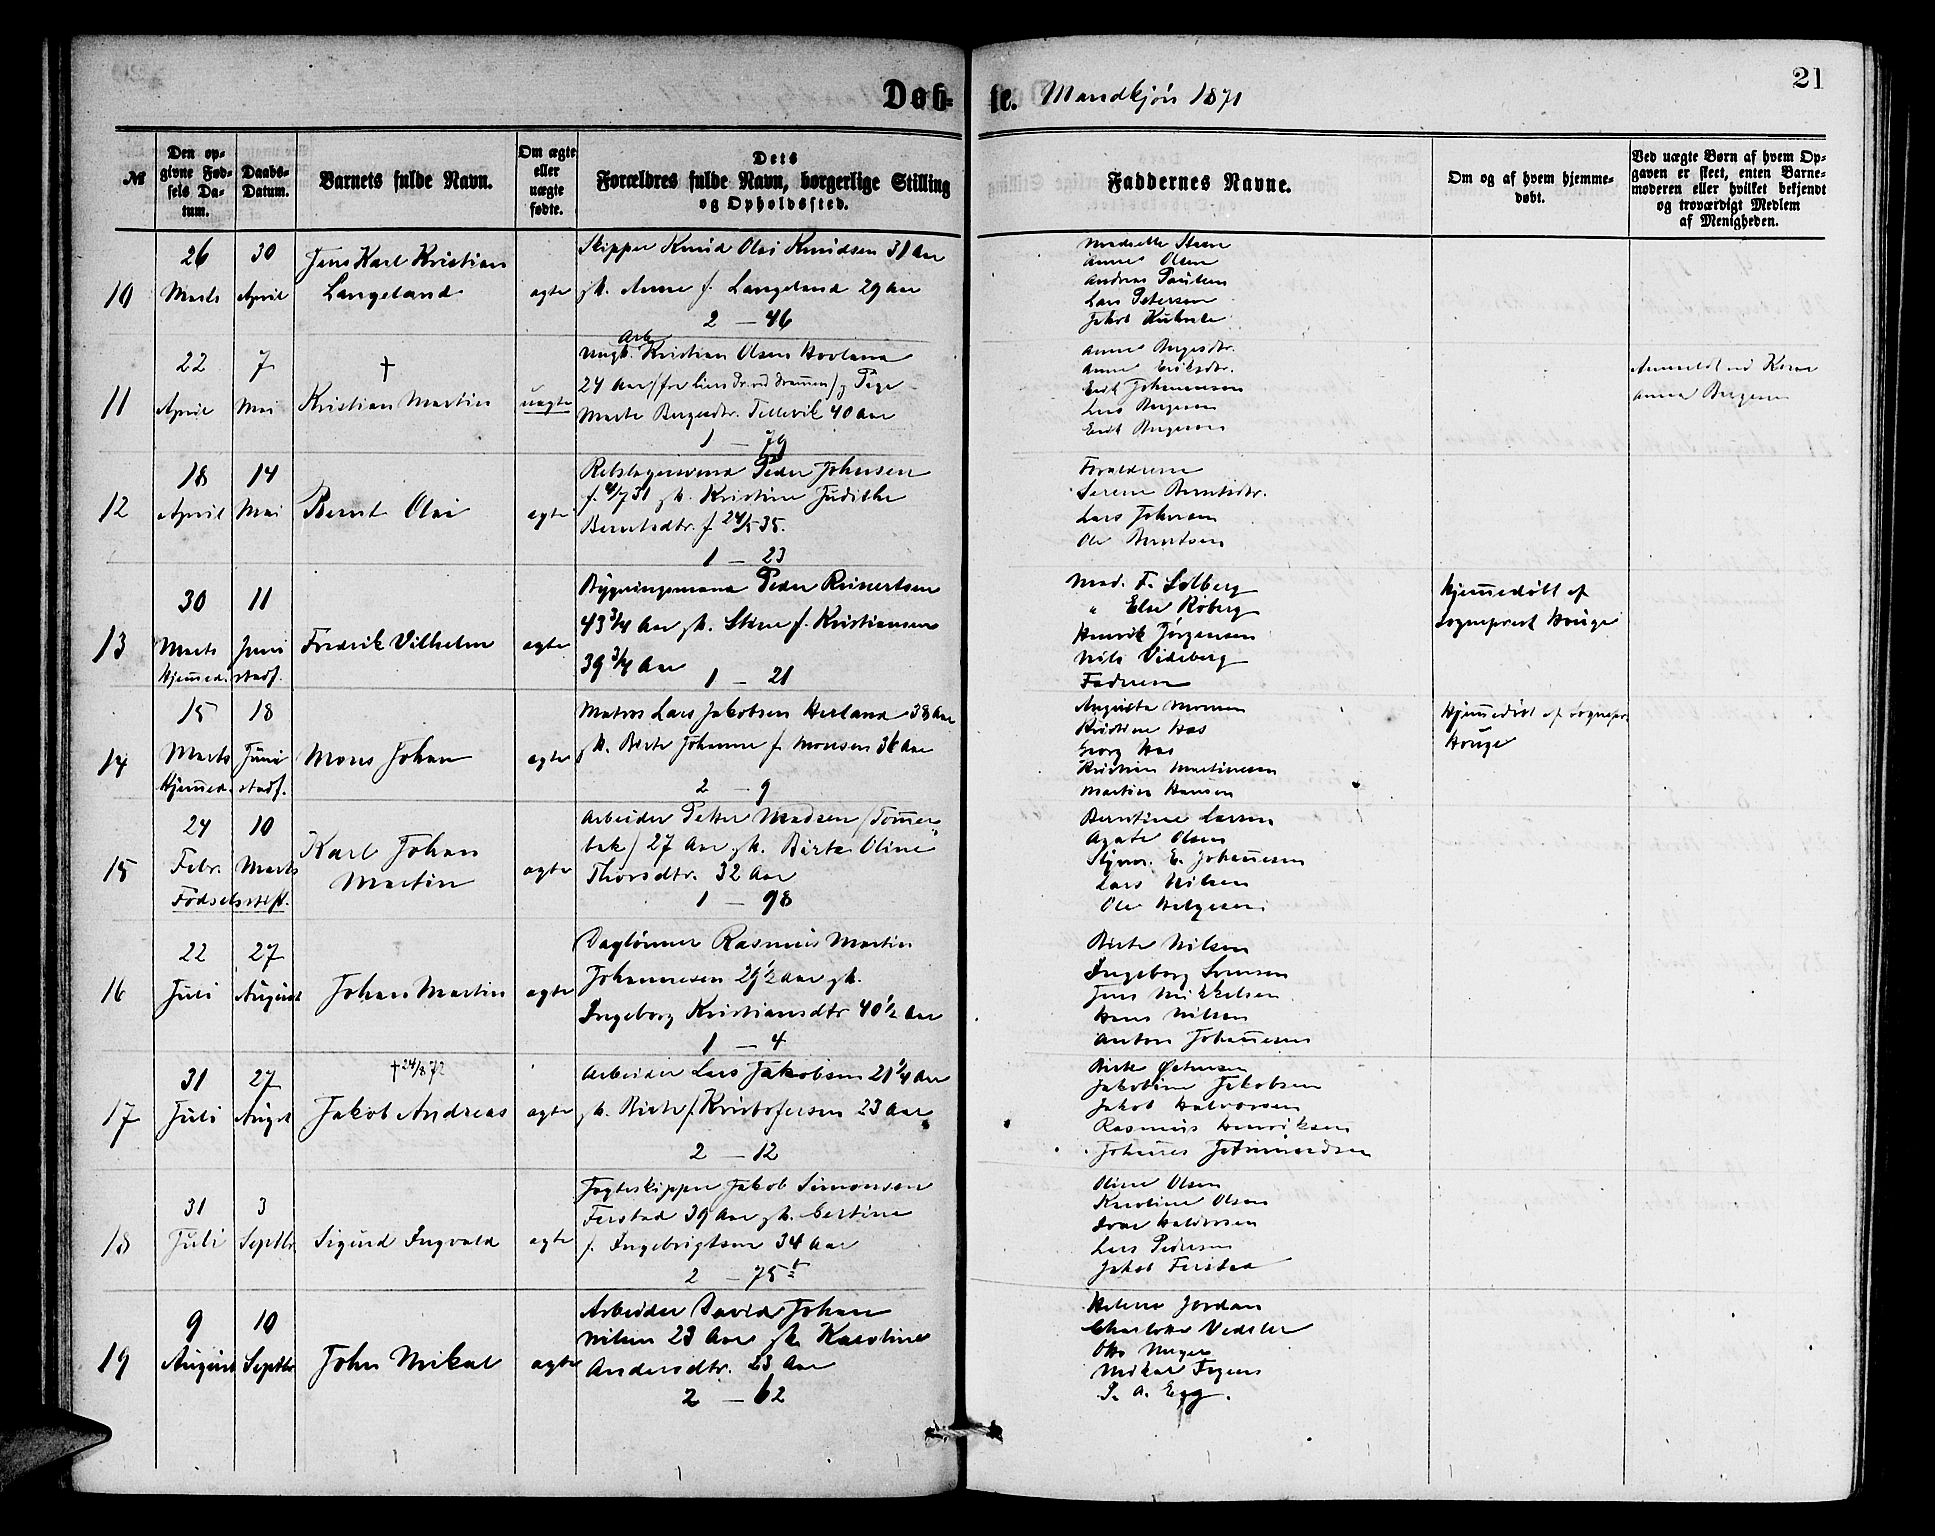 Døb-
te. Mandkjøn 1871
21
№
Den op-
givne Fød-
sels Da-
tum.
Daabs-
Datum.
Barnets fulde Navn.
Om ægte
eller
uægte
fødte.
Dets
Forældres fulde Navn, borgerlige Stilling
og Opholdssted.
Faddernes Navne.
Om og af hvem hjemme-
døbt.
Ved uægte Børn af hvem Op-
gaven er skeet, enten Barne-
moderen eller hvilket bekjendt
og troværdigt Medlem
af Menigheden.
10
26
Marts
30
April
Jens Karl Kristian
Langeland
ægte
Skipper Knud Olai Knudsen 31 Aar
gh. Anne f. Langeland 29 Aar
2 – 46
Anne Olsen
Andreas Paulsen
Lars Petersen
Jakob
11
22
April
7
Mai
†
Kristian Martin
uægte
Arb.
Ungk. Kristian Olsen Hovland
24 Aar / og Pige
Marte Bergesdtr. Tellevik 40 Aar
1 – 79
Anne Bergesdtr.
Anne Eriksdtr.
Erik Johannesen
Lars Bergesen
Erik Bergesen
Anmeldt ved Kone
Anna Bergesen
12
18
April
14
Mai
Bernt Olai
ægte
Rebslagersvend Peder Johnsen
f. 4/7 31 gh. Kristine Judithe
Berntsdtr. f 24/5 35.
1 – 23
Forældrene
Serene Berntsdtr.
Lars Johnsen
Ole Berntsen
13
30
Marts
Hjemmed.
11
Juni
stadf.
Fredrik Vilhelm
ægte
Bygningsmand Peder Reinertsen
43 3/4 Aar gh. Stine f. Kristiansen
39 3/4 Aar
1 – 21
Mad. F. Solberg
" Else Roberg
Henrik Jørgensen
Nils Videberg
Faderen
Hjemmedøbt af
Sogneprest Houge
14
15
Marts
Hjemmed.
18
Juni
stadf.
Mons Johan
ægte
Matros Lars Jakobsen Herland 38 Aar
gh. Birte Johanne f. Monsen 36 Aar
2 – 9
Augusta Monsen
Kristine Has
Georg Has
Kristian Martinesen
Martin Hansen
Hjemmedøbt af Sognepr.
Houge
15
24
Febr.
10
Marts
Fødselsstift.
Karl Johan
Martin
ægte
Arbeider Petter Madsen (Tømmer-
bak) 27 Aar gh. Birte Oline
Thorsdtr. 32 Aar
1 – 98
Berntine Larsen
Agate Olsen
Styrm. E. Johannesen
Lars Nilsen
Ole Helgesen
16
22
Juli
27
August
Johan Martin
ægte
Dagløner Rasmus Martin
Johannesen 29 1/2 Aar gh.
Ingeborg Kristiansdtr 40 1/2 Aar
1 – 4
Birte Nilsen
Ingeborg Svensen
Jens Mikkelsen
Hans Nilsen
Anton Johannesen
17
31
Juli
27
Augst
† 24/8 72
Jakob Andreas
ægte
Arbeider Lars Jakobsen 21 1/4 Aar
gh. Birte f. Kristofersen 23 Aar
2 – 12
Birte
Jakobine Jakobsen
Jakob Halvorsen
Rasmus Henriksen
Johannes
18
31
Juli
3
Septbr.
Sigurd Ingvald
ægte
Jagteskipper Jakob Simonsen
Ferstad 39 Aar gh. Bertine
f. Ingebrigtsen 34 Aar
2 – 75 b
Oline Olsen
Karoline Olsen
Ivar Halvorsen
Lars Pedersen
Jakob Ferstad
19
9
August
10
Septbr.
John Mikal
ægte
Arbeider David Johan
Nilsen 23 Aar gh Karoline
Andersdtr. 23 Aar
2 – 62
Helene Jordan
Charlotte Vedeler
Otto Meyer
Mikal
P. A. Egg.